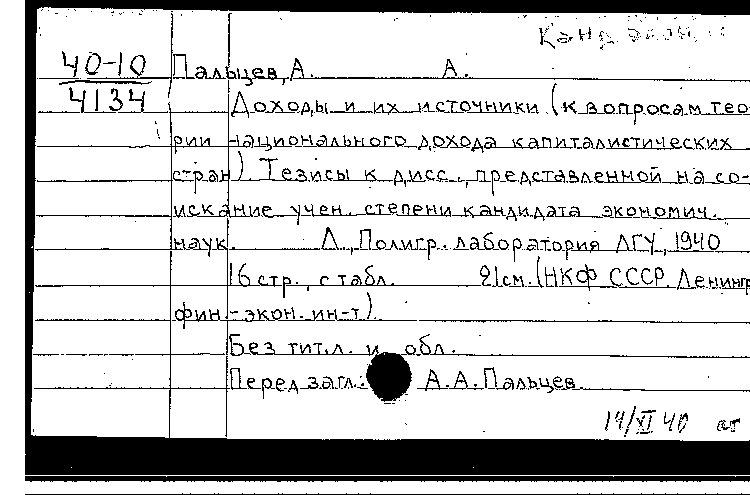 Канд. экон. н.
40-10
4134
Пальцев, А. А.
Доходы и их источники (к вопросам тео-
рии национального дохода капиталистических
стран) Тезисы к дисс., представленной на со-
искание учен. степени кандидата экономич.
наук. Л., Полигр. лаборатория ЛГУ, 1940
16 стр., с табл. 21см. (НКФ СССР. Ленингр
фин.-экон. ин-т).
Без тит.л. и обл.
Перед загл.: А.А. Пальцев.
14/XI 40